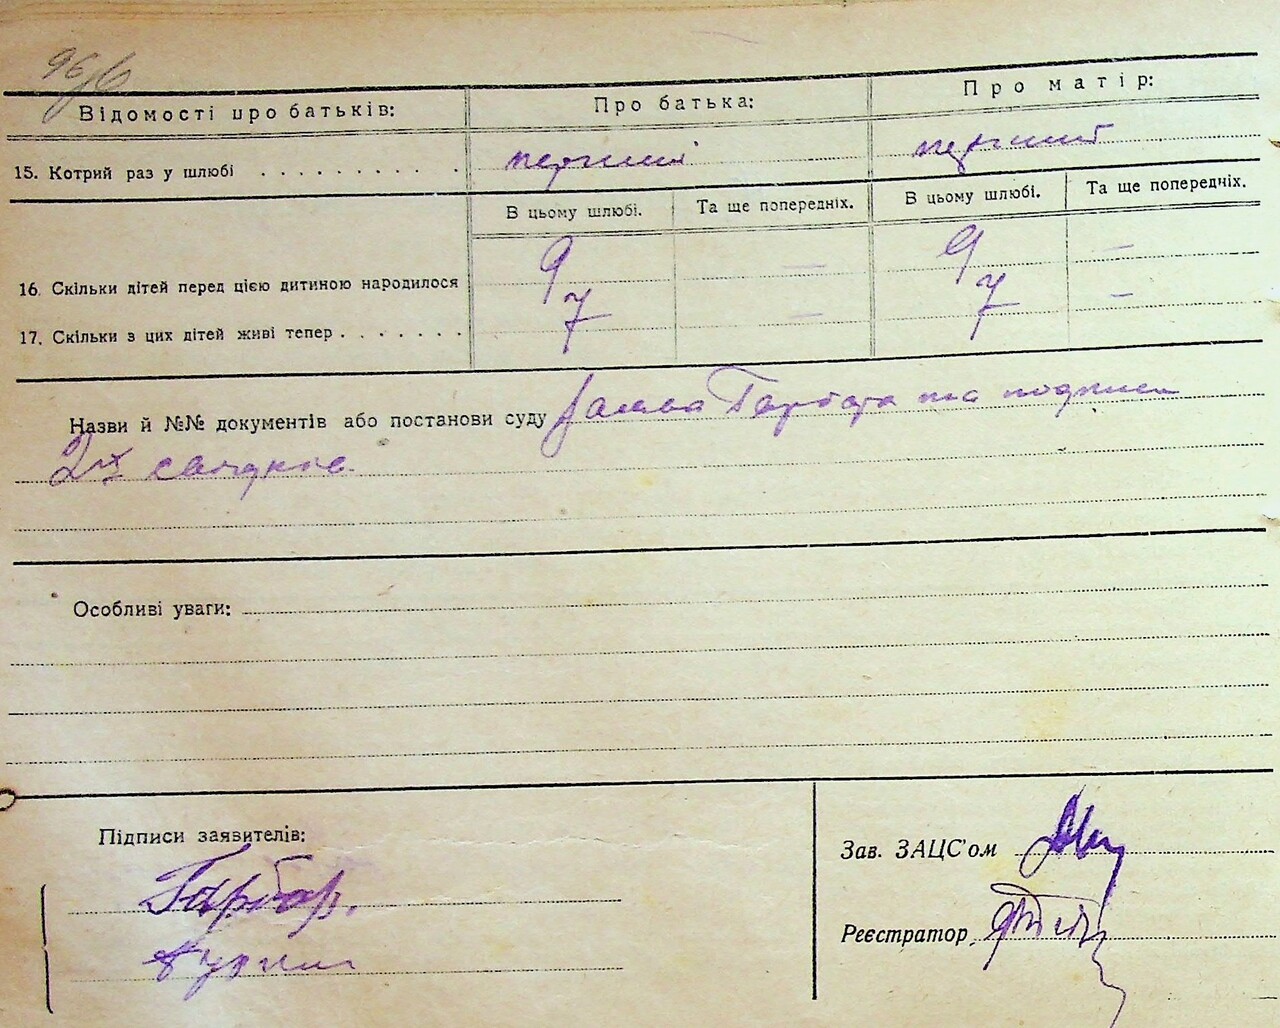 96
Відомості про батьків: Про батька: Про матір:
15. Котрий раз у шлюбі . . . . . . . . . . . перший перший
В цьому шлюбі. Та ще попередніх. В цьому шлюбі. Та ще попередніх.
16. Скільки дітей перед цією дитиною народилося 9 — 9 —
17. Скільки з цих дітей живі тепер . . . . . . . 7 — 7 —
Назви й №№ документів або постанови суду Заява Гарбара та подписи
2х свидків.
Особливі уваги:
Підписи заявителів:
Зав. ЗАЦС'ом
Гарбар.
Реєстратор